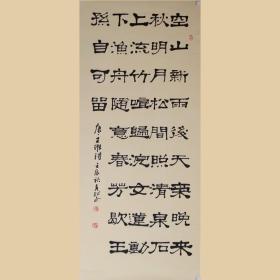 空山新雨後天氣晚來
秋明月松間照清泉石
上流竹喧歸浣女蓮動
下漁舟隨意春芳歇王
孫自可留
唐王維詩